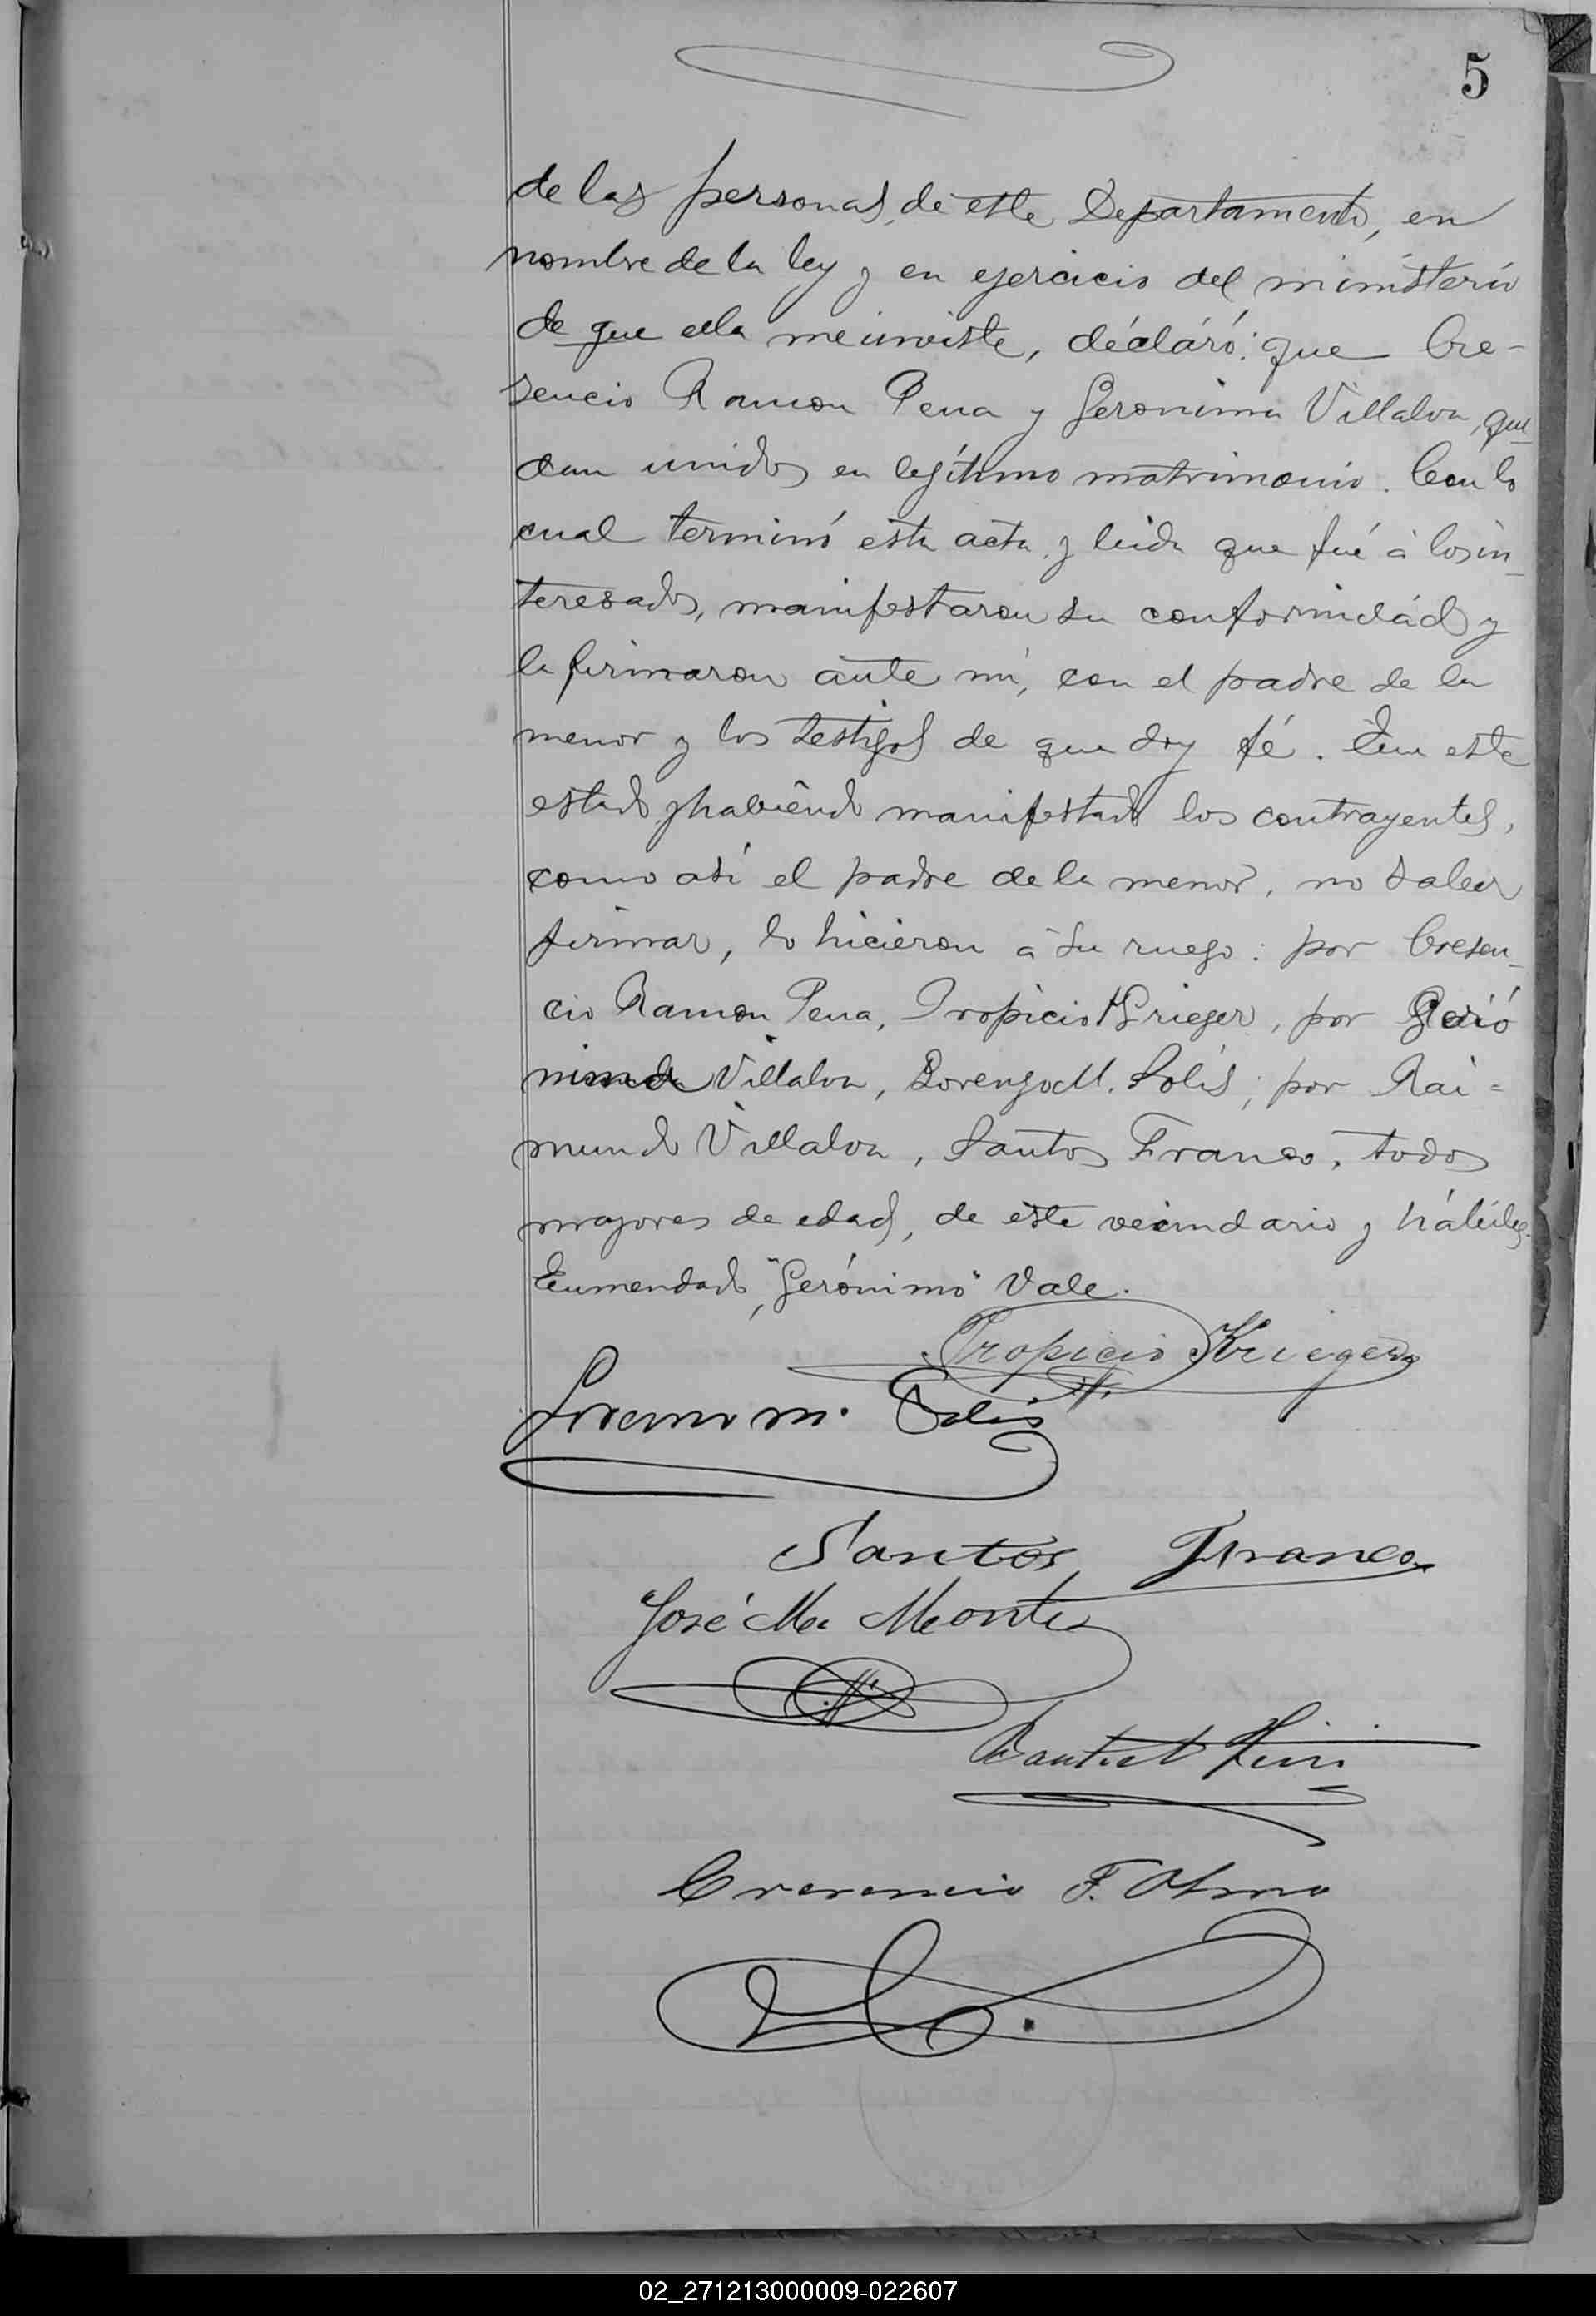 5
de las personas, de este Departamento, en
nombre de la ley y en ejercicio del ministerio
de que ella me inviste, décláró: que Cre-
sencio Ramon Pena y Geronima Villalva, que-
dan unidos en legítimo matrimonio. Con lo
cual terminó esta acta y leida que fué á los in-
teresados, manifestaron su conformidad y
la firmaron ante mí, con el padre de la
menor y los testigos de que doy fé. En este
estado, y habiendo manifestado los contrayentes,
como asi el padre de la menor, no saber
firmar, lo hicieron á su ruego: por Cresen-
cio Ramon Pena, Tropicio Krieger, por Geró
nima Villalva, Lorenzo M. Solis; por Rai-
mundo Villalva, Santos Franco, todos
mayores de edad, de este vecindario y hábiles.
Enmendado, "Gerónimo" Vale.
Tropicio Krieger
Lorenzo M. Solis
Santos Franco
José Ma Montes
Bautist
F. Olmo
02_271213000009-022607